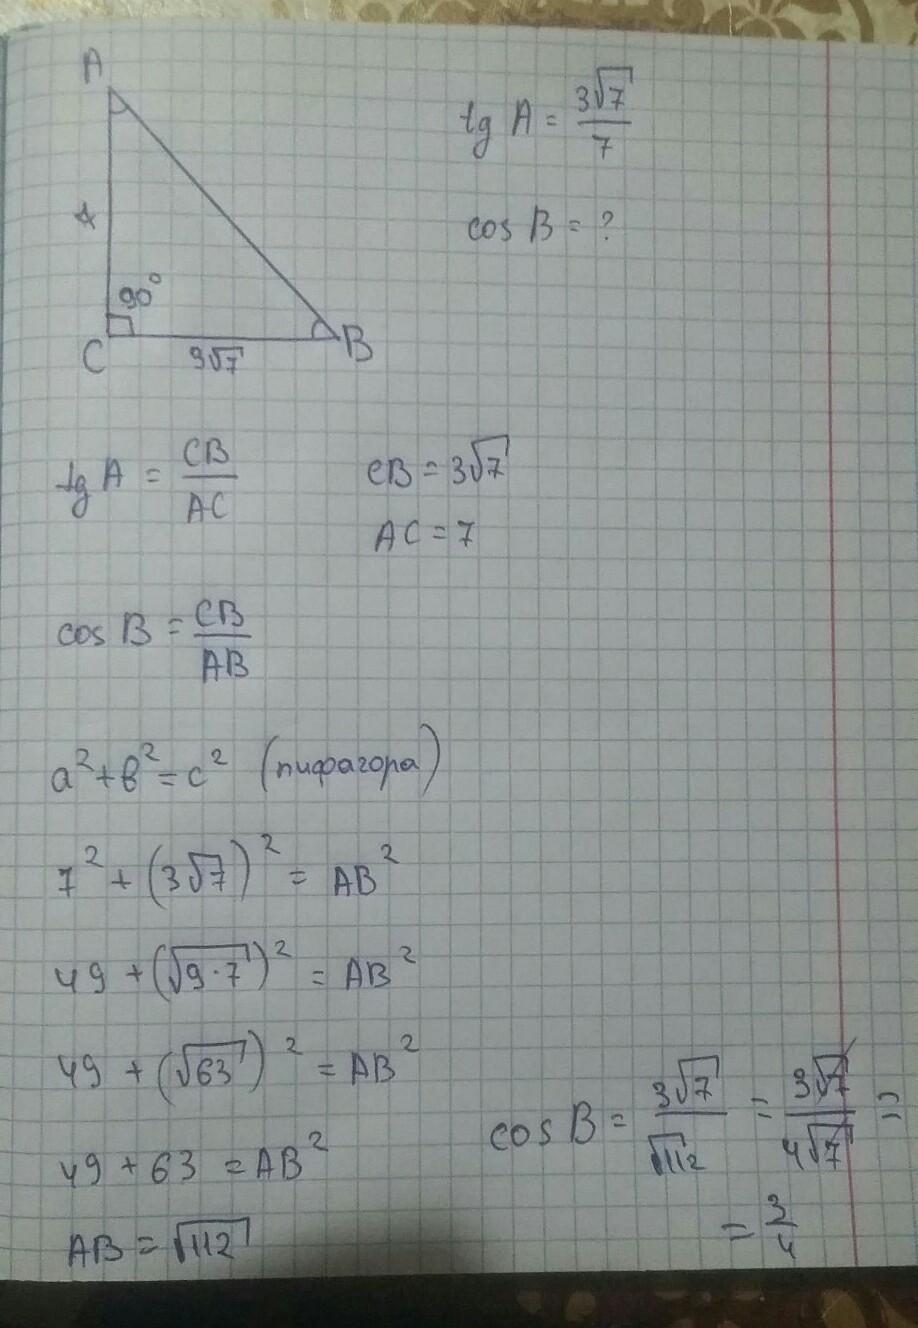 A
tg A = 3√7/7
cos B = ?
90°
C
3√7
B
tg A = CB/AC
CB = 3√7
AC = 7
cos B = CB/AB
a² + b² = c² (пифагора)
7² + (3√7)² = AB²
49 + (√9·7)² = AB²
49 + (√63)² = AB²
49 + 63 = AB²
AB = √112
cos B = 3√7/√112 = 3√7/4√7 =
= 3/4